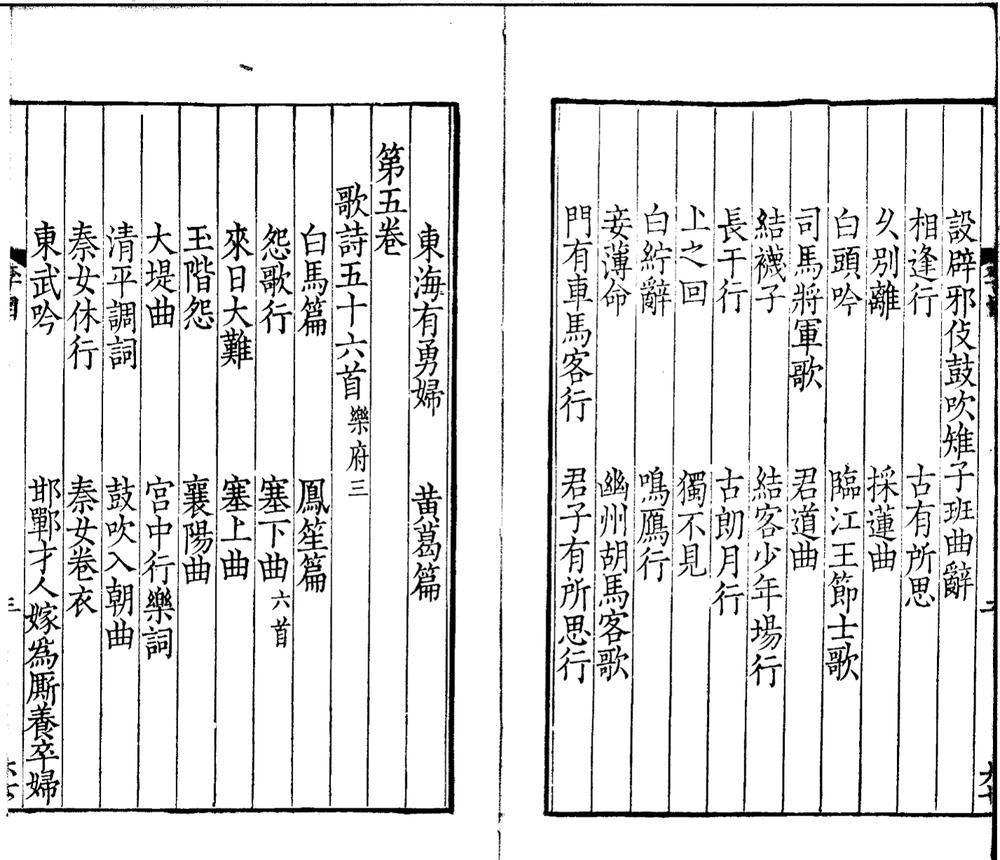 設辟邪伎鼓吹雉子班曲辭
相逢行　古有所思
久別離　採蓮曲
白頭吟　臨江王節士歌
司馬將軍歌　君道曲
結襪子　結客少年場行
長干行　古朗月行
上之回　獨不見
白紵辭　鳴鴈行
妾薄命　幽州胡馬客歌
門有車馬客行　君子有所思行
東海有勇婦　黃葛篇
第五卷
歌詩五十六首樂府三
白馬篇　鳳笙篇
怨歌行　塞下曲六首
來日大難　塞上曲
玉階怨　襄陽曲
大堤曲　宮中行樂詞
清平調詞　鼓吹入朝曲
秦女休行　秦女卷衣
東武吟　邯鄲才人嫁為厮養卒婦
三